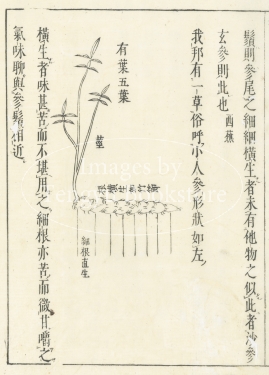 鬚則參尾之細細橫生者未有他物之似此者沙參
玄參則此也 西蕉
我邦有一草俗呼小人參形狀如左
有葉五葉
莖
細根直生
橫生者味甚苦而不堪用之細根亦苦而微甘嚼之
氣味聊與參鬚相近